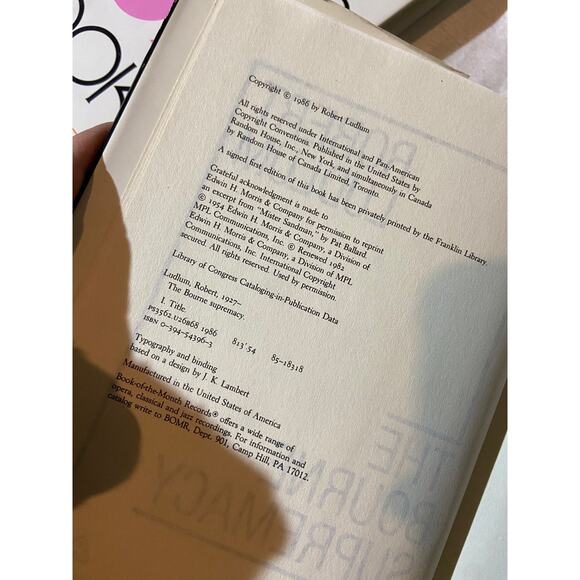 ook
Copyright © 1986 by Robert Ludlum
All rights reserved under International and Pan-American
Copyright Conventions. Published in the United States by
Random House, Inc., New York, and simultaneously in Canada
by Random House of Canada Limited, Toronto.
A signed first edition of this book has been privately printed by the Franklin Library.
Grateful acknowledgment is made to
Edwin H. Morris & Company for permission to reprint
an excerpt from "Mister Sandman," by Pat Ballard.
© 1954 Edwin H. Morris & Company, a Division of
MPL Communications, Inc. © Renewed 1982
Edwin H. Morris & Company, a Division of MPL
Communications, Inc. International Copyright
secured. All rights reserved. Used by permission.
Library of Congress Cataloging-in-Publication Data
Ludlum, Robert, 1927–
The Bourne supremacy.
I. Title.
PS3562.U26B68 1986 813'.54 85-18318
ISBN 0-394-54396-3
Typography and binding
based on a design by J. K. Lambert
Manufactured in the United States of America
Book-of-the-Month Records® offers a wide range of
opera, classical and jazz recordings. For information and
catalog write to BOMR, Dept. 901, Camp Hill, PA 17012.
THE
BOURNE
SUPREMACY